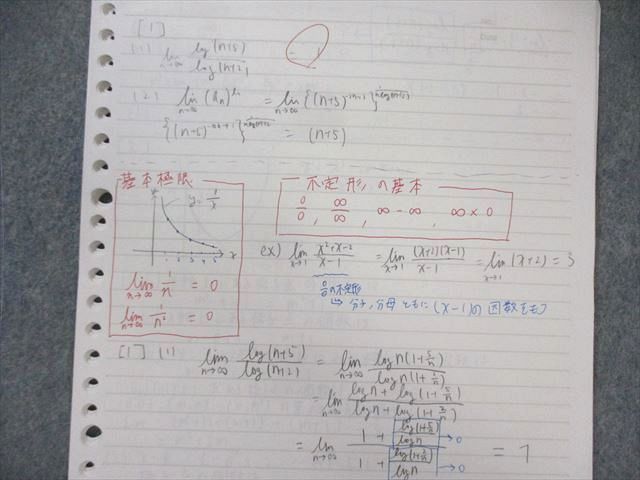 [1]
(1) lim n→∞ log(n+5)/log(n+2)
(2) lim n→∞ = lim n→∞
= (n+5)
基本極限
y=1/x
x
1 2 3 4 5
lim n→∞ 1/n = 0
lim n→∞ = 0
不定形の基本
0/0, ∞/∞, ∞-∞, ∞×0
ex) lim x→1 x²+x-2/x-1 = lim x→1 (x+2)(x-1)/x-1 = lim x→1 (x+2) = 3
0/0の不定形
↳ 分子,分母ともに(x-1)の因数をもつ
[1] (1) lim n→∞ log(n+5)/log(n+2) = lim n→∞ log n(1+5/n)/log n(1+2/n)
= lim n→∞ log n + log(1+5/n)/log n + log(1+2/n)
= lim n→∞ 1 + log(1+5/n)/log n →0 / 1 + log(1+2/n)/log n →0 = 1